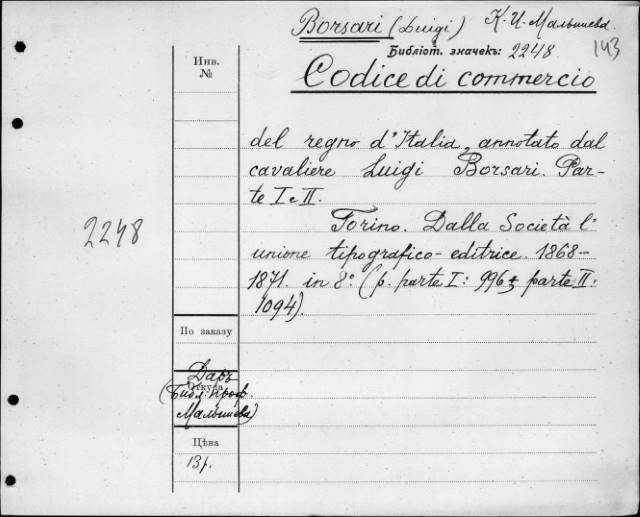 Borsari (Luigi) К. И. Малышева.
Библіот. значекъ: 2248
143
Codice di commercio
Инв.
№
del regno d'Italia, annotato dal
cavaliere Luigi Borsari. Par-
te I e II.
Torino. Dalla Società l'
unione tipografico-editrice. 1868-
1871. in 8°. (p. parte I: 996 parte II:
1094).
2248
По заказу
Даръ
Откуда
(Библ. проф.
Малышева)
Цѣна
13 р.